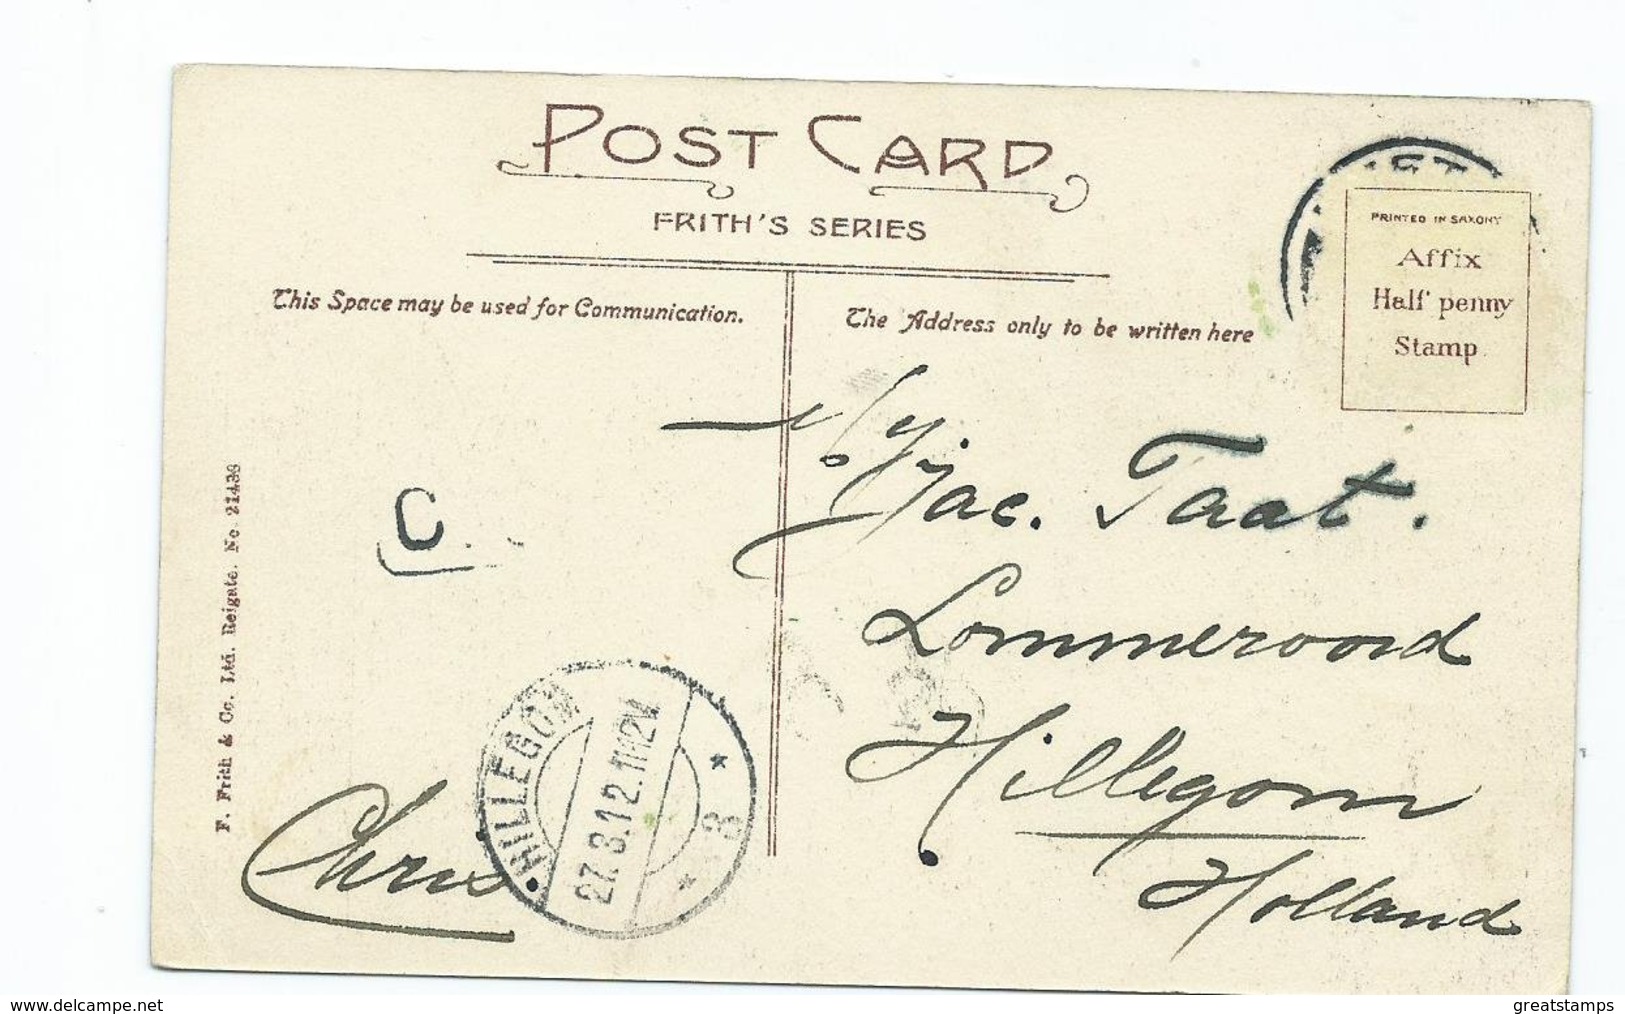 POST CARD
FRITH'S SERIES
PRINTED IN SAXONY
Affix
Half penny
Stamp
This Space may be used for Communication.
The Address only to be written here
Jac. Taat.
Lommeroord
Hillegom
Holland
C
Chris
HILLEGOM
27.3.12.11-12V
* 3 *
F. Frith & Co. Ltd. Reigate. No. 21436
www.delcampe.net
greatstamps